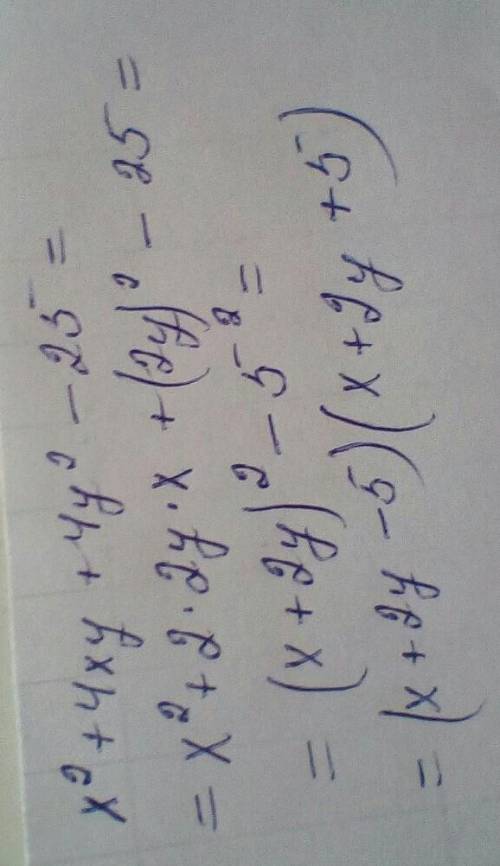 x² + 4xy + 4y² - 25 =
= x² + 2·2y·x + (2y)² - 25 =
= (x + 2y)² - 5² =
= (x + 2y - 5)(x + 2y + 5)